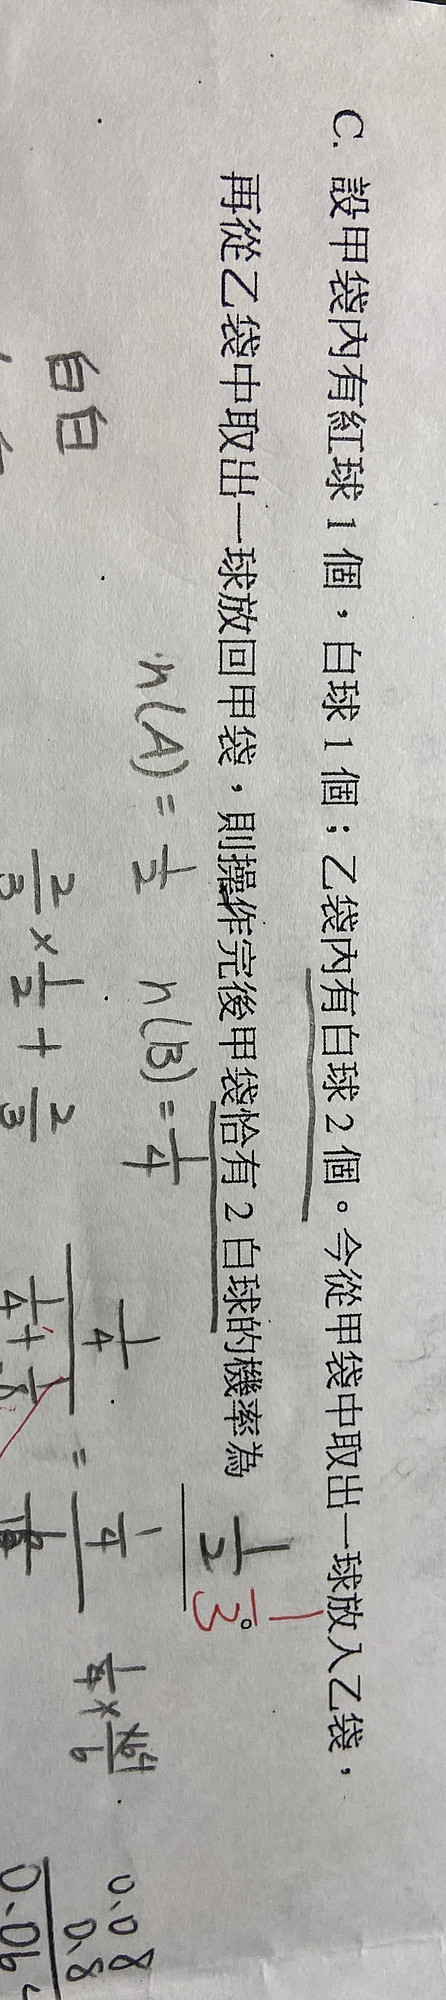 C. 設甲袋內有紅球 1 個，白球 1 個；乙袋內有白球 2 個。今從甲袋中取出一球放入乙袋，
再從乙袋中取出一球放回甲袋，則操作完後甲袋恰有 2 白球的機率為 1/2 1/3 。
n(A) = 1/2 n(B) = 1/4
白白
2/3 × 1/2 + 2/3
1/4
1/4 +
= 1/4
0.08
0.8
0.064